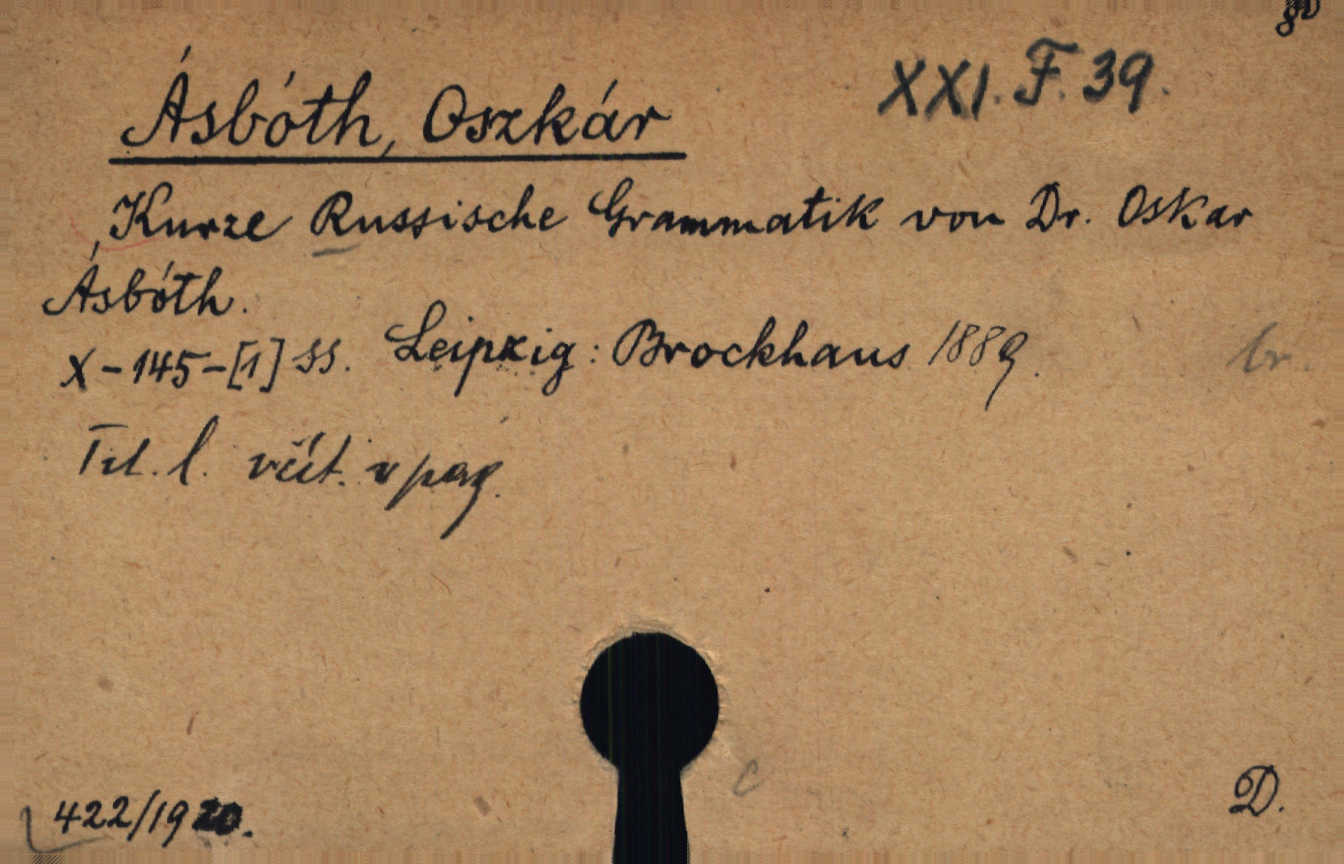 8º
XXI. F. 39.
Ásbóth, Oszkár
Kurze Russische Grammatik von Dr. Oskar
Ásbóth.
X-145-[1] SS. Leipzig: Brockhaus 1889.
br.
Tit. l. včít. v pag.
c
422/1920.
D.